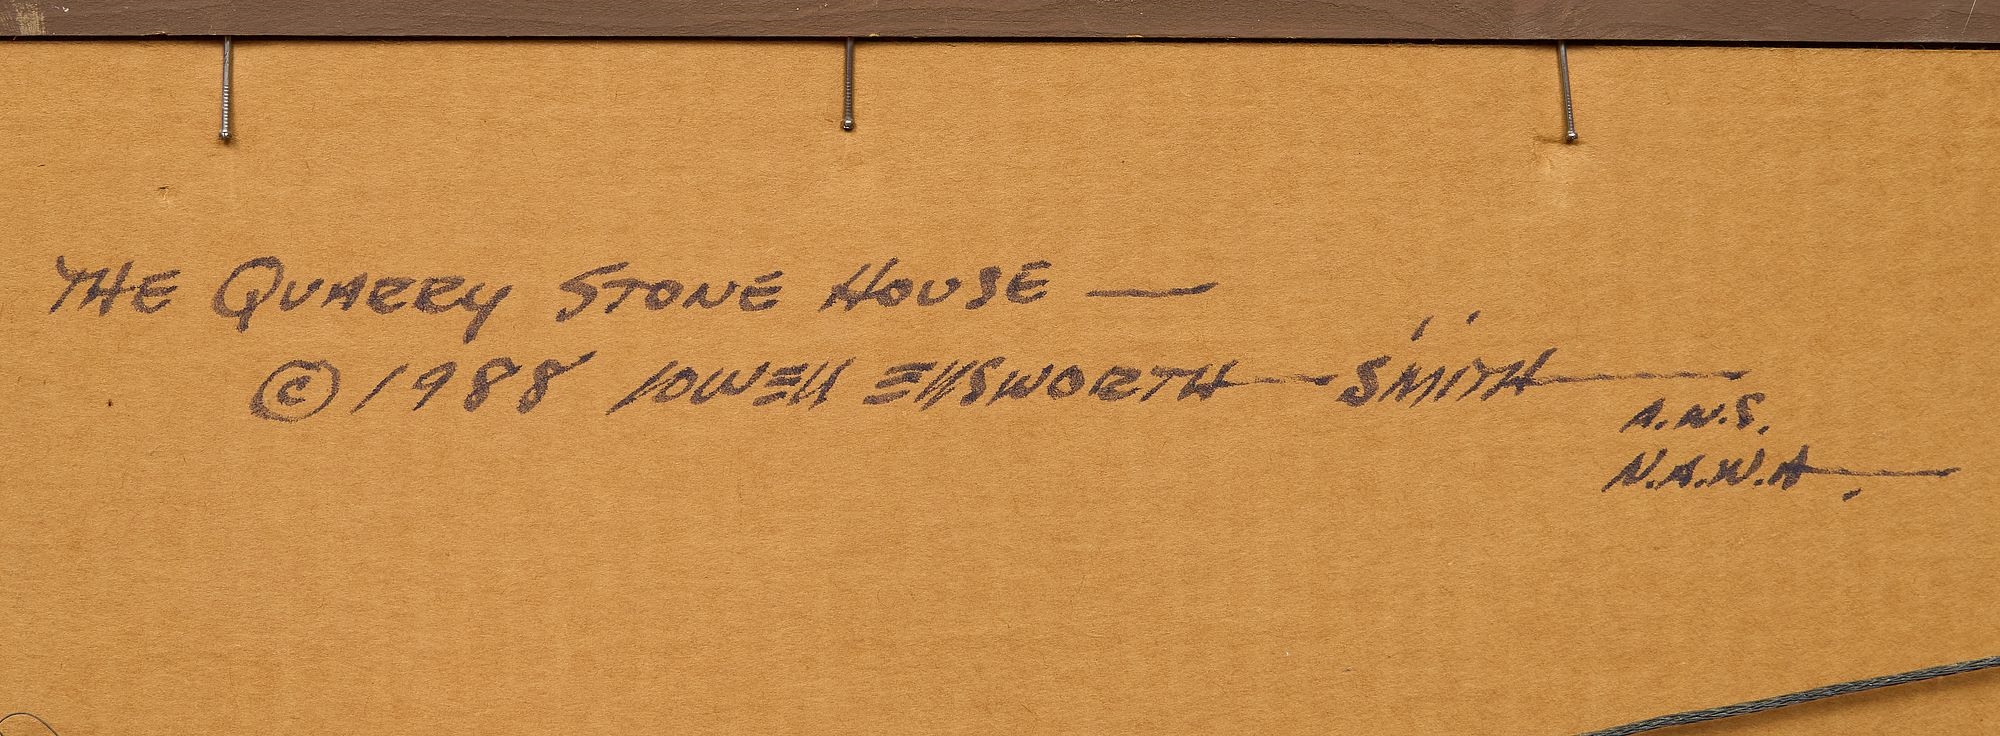 THE QUARRY STONE HOUSE —
© 1988 LOWELL ELLSWORTH — SMITH —
A.W.S.
N.A.W.A.